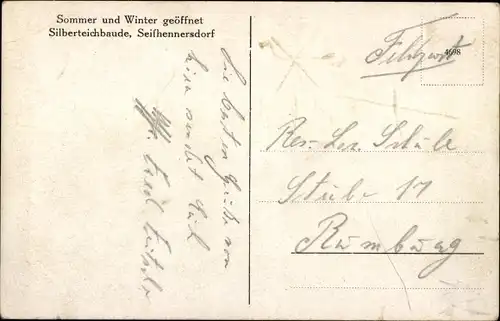 Sommer und Winter geöffnet
Silberteichbaude, Seifhennersdorf
Die besten Grüße von
hier sendet Euch
Uffz.
4698
Feldpost
Res.-Laz. Schule
Stube 17
Rumburg